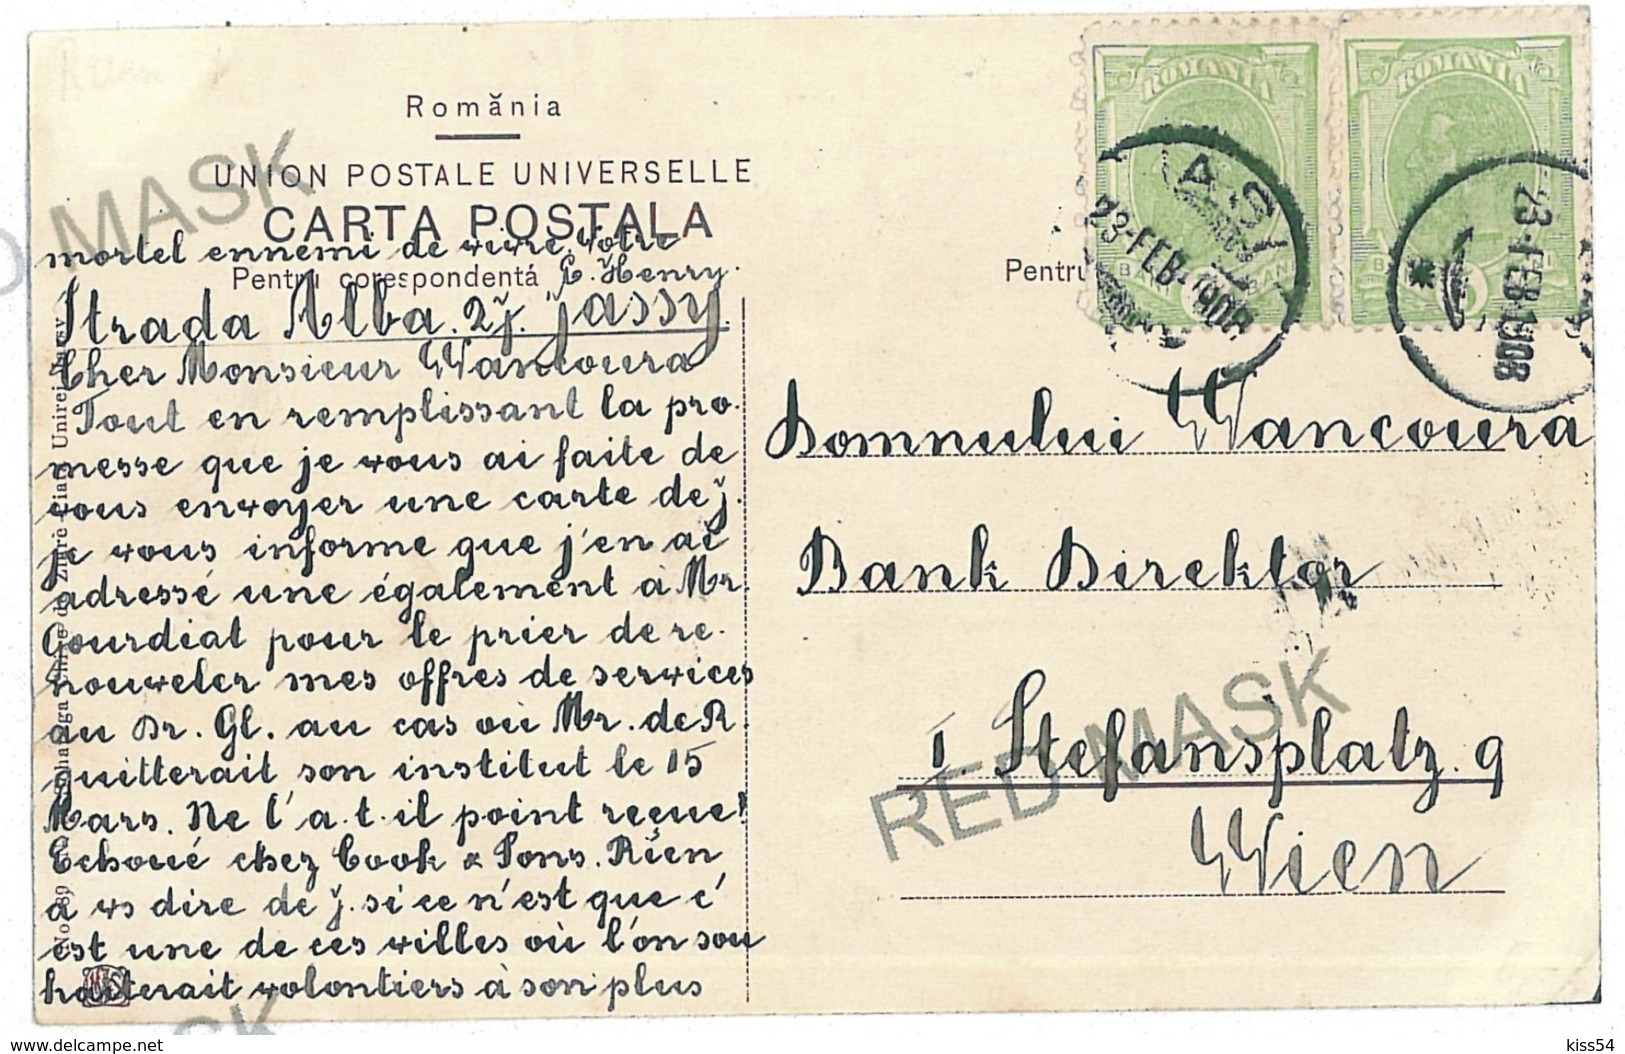 România
UNION POSTALE UNIVERSELLE
CARTA POSTALA
mortel ennemi de vivre. Votre
Pentru corespondentá E. Henry.
Strada Alba. 27. Jassy.
Cher Monsieur Wancoura
Tout en remplissant la pro-
messe que je vous ai faite de
vous envoyer une carte de J.
je vous informe que j'en ai
adressé une également à Mr.
Gourdiat pour le prier de re-
nouveler mes offres de services
au Dr. Gl. au cas où Mr. de R.
quitterait son institut le 15
Mars. Ne l'a-t-il point reçue?
Echoué chez Cook & Sons. Rien
à vs dire de J. si ce n'est que c'
est une de ces villes où l'on sou
haiterait volontiers à son plus
Pentru
ROMANIA
ROMANIA
BANI
5
23-FEB-1908
23-FEB 1908
Domnului Wancoura
Bank Direktor
1. Stefansplatz. 9
Wien
Unirei Jassy
RED MASK
MASK
SK
www.delcampe.net
kiss54